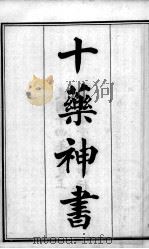 十藥神書